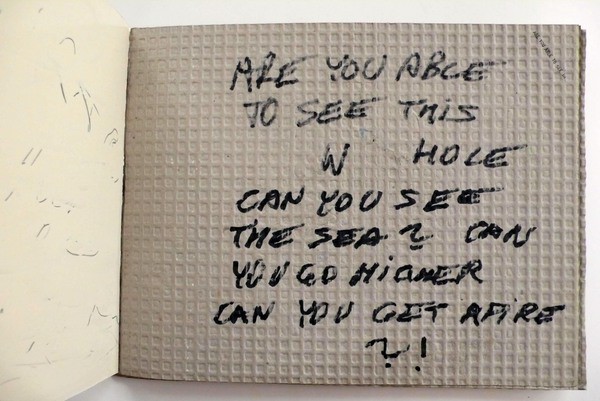 ARE YOU ABLE
TO SEE THIS
W HOLE
CAN YOU SEE
THE SEA? CAN
YOU GO HIGHER
CAN YOU GET AFIRE
?!